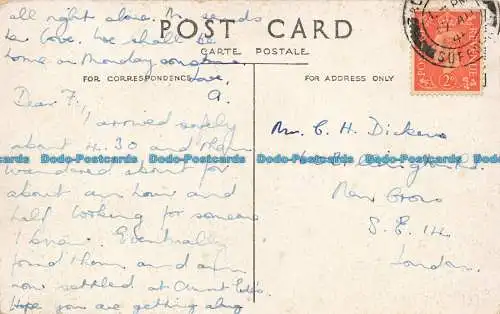 all right alone. M. sends
her love. We shall be
home on Monday sometime.
Love,
A.
POST CARD
CARTE POSTALE
FOR CORRESPONDENCE
FOR ADDRESS ONLY
Dear F,
I arrived safely
about 4.30 and then
wandered about for
about an hour and
half looking for someone
I knew. Eventually
found them and am
now settled at Aunt
Hope you are getting along
Mr. C. H. Dickens
New Cross
S.E. 14
London.
Dodo-Postcards Dodo-Postcards Dodo-Postcards Dodo-Postcards Dodo-Postcards